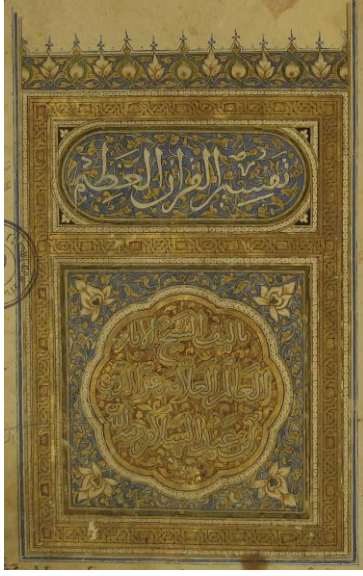 تفسير القران العظيم
تاليف الشيخ الامام
العالم العلامة عز الدين
بن عبد السلام